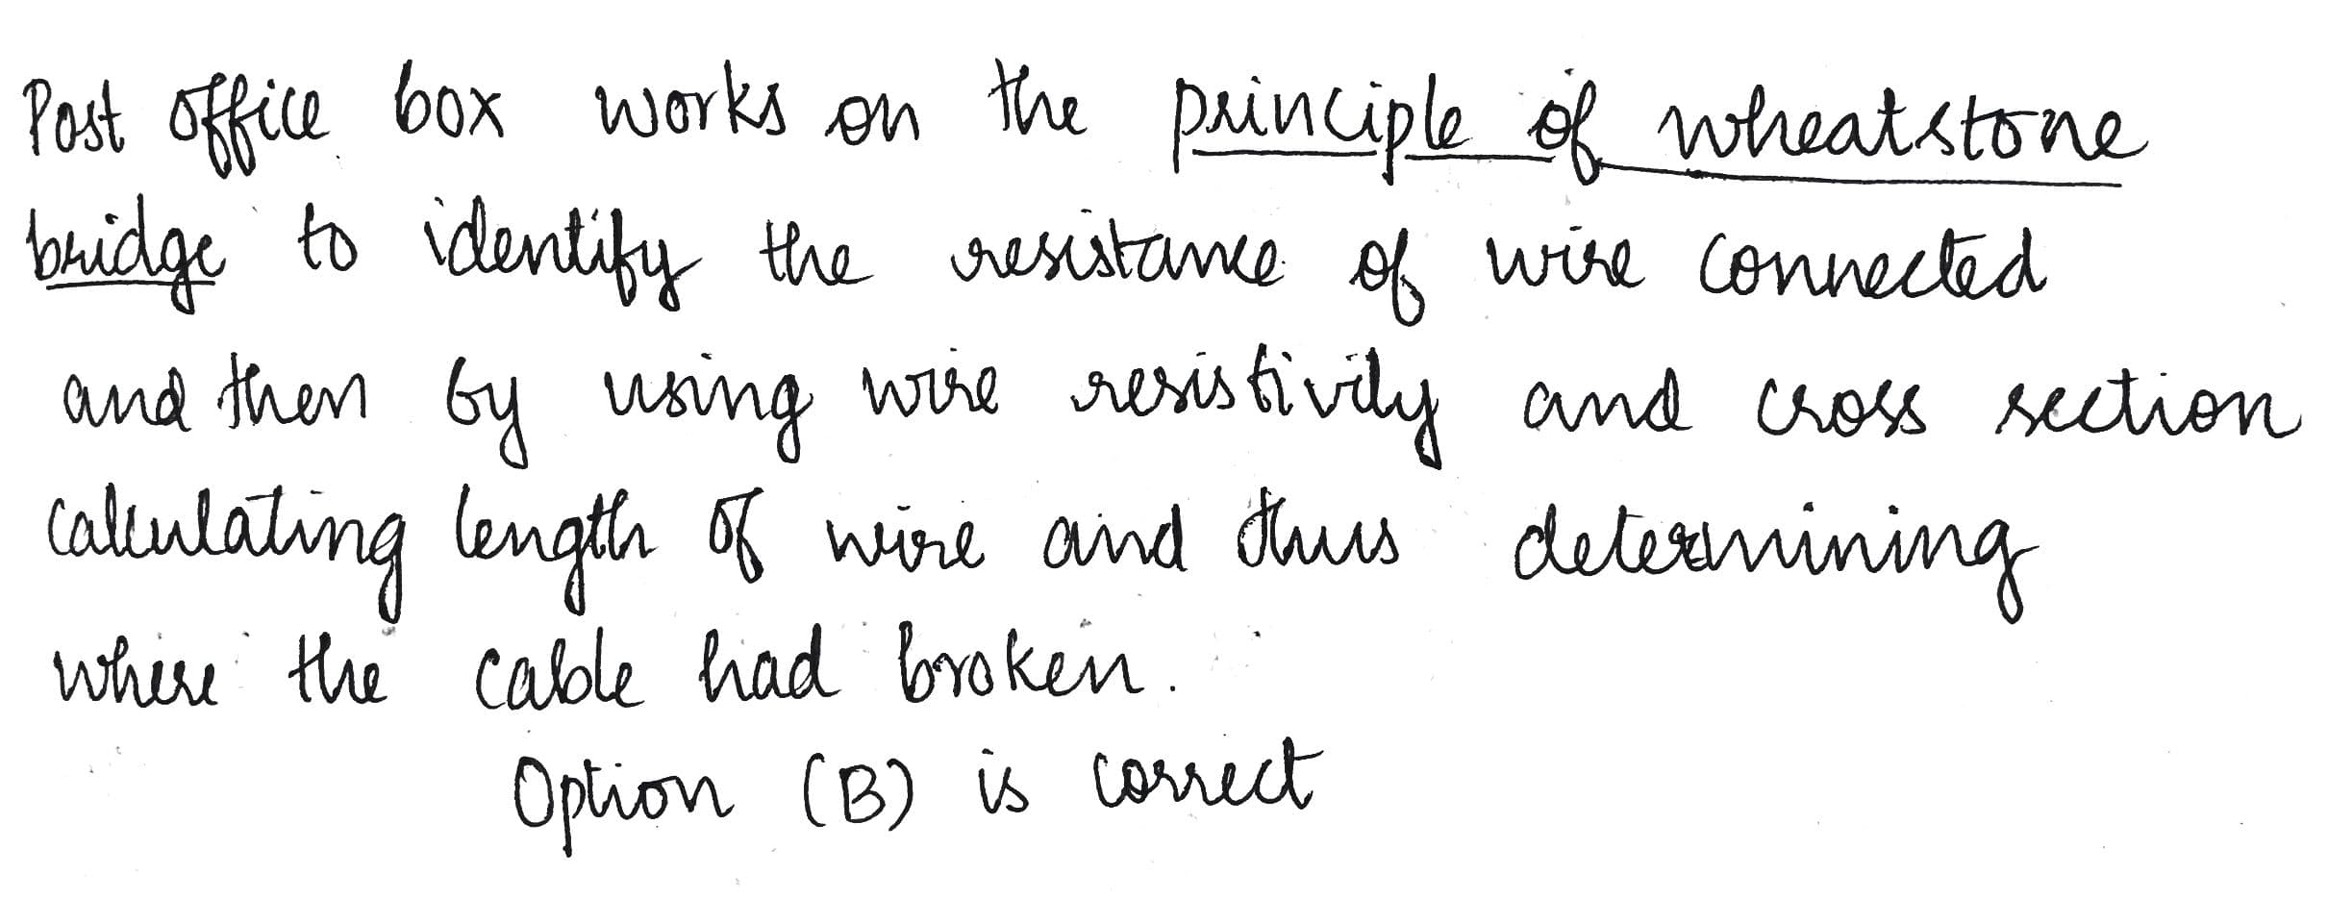 Post office box works on the principle of wheatstone
bridge to identify the resistance of wire connected
and then by using wire resistivity and cross section
calculating length of wire and thus determining
where the cable had broken.
Option (B) is correct